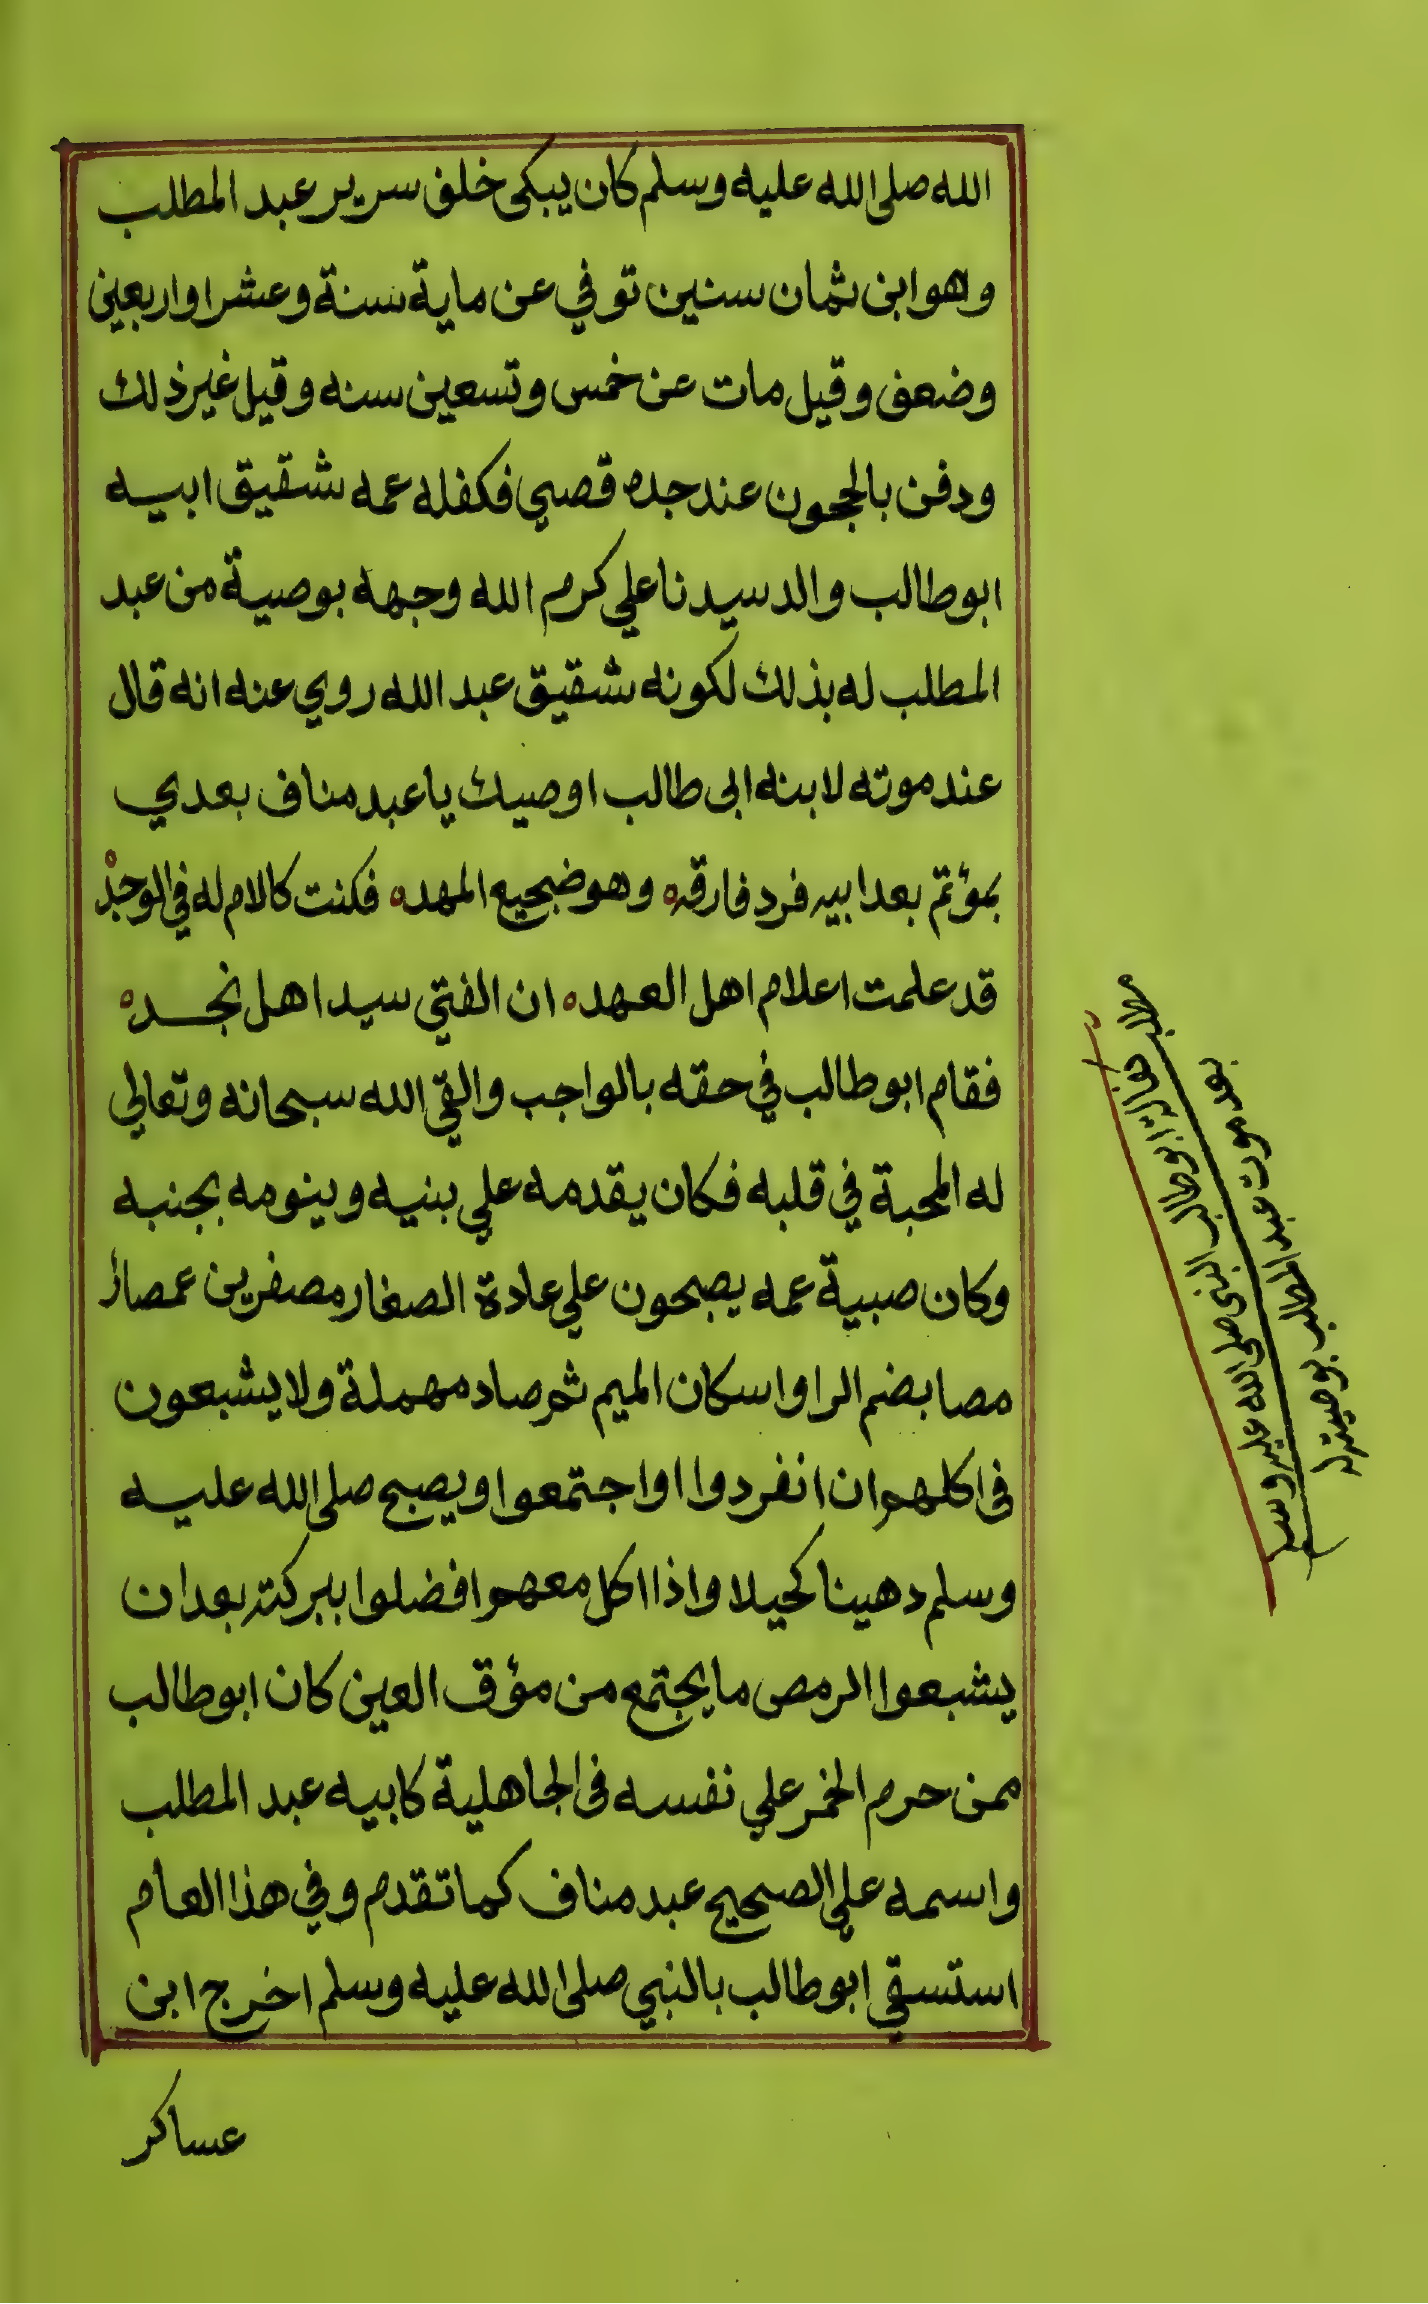 الله صلى الله عليه وسلم كان يبكى خلف سرير عبد المطلب
وهو ابن ثمان سنين توفي عن ماية سنة وعشرا واربعين
وضعف وقيل مات عن خمس وتسعين سنه وقيل غير ذلك
ودفن بالحجون عند جده قصي فكفله عمه شقيق ابيه
ابو طالب والد سيدنا علي كرم الله وجهه بوصية من عبد
المطلب له بذلك لكونه شقيق عبد الله روي عنه انه قال
عند موته لابنه ابى طالب اوصيك يا عبد مناف بعدي
بمؤتم بعد ابيه فرد فارقه وهو ضجيع المهد فكنت كالام له في الوجد
قد علمت اعلام اهل العهد ان الفتي سيد اهل نجد
فقام ابو طالب في حقه بالواجب والقي الله سبحانه وتعالي
له المحبة في قلبه فكان يقدمه علي بنيه وينومه بجنبه
وكان صبية عمه يصبحون علي عادة الصغار مصفرين عمصا
مصا بضم الرا واسكان الميم ثم صاد مهملة ولا يشبعون
فى اكلهم ان انفردوا او اجتمعوا ويصبح صلى الله عليه
وسلم دهينا كحيلا واذا اكل معهم افضلوا ببركته بعد ان
يشبعوا الرمص ما يجتمع من مؤق العين كان ابو طالب
ممن حرم الخمر علي نفسه فى الجاهلية كابيه عبد المطلب
واسمه علي الصحيح عبد مناف كما تقدم وفي هذا العام
استسقي ابو طالب بالنبي صلى الله عليه وسلم اخرج ابن
عساكر
مطلب كفالة ابو طالب النبى صلى الله عليه وسلم
بعد موت عبد المطلب بوصيته له